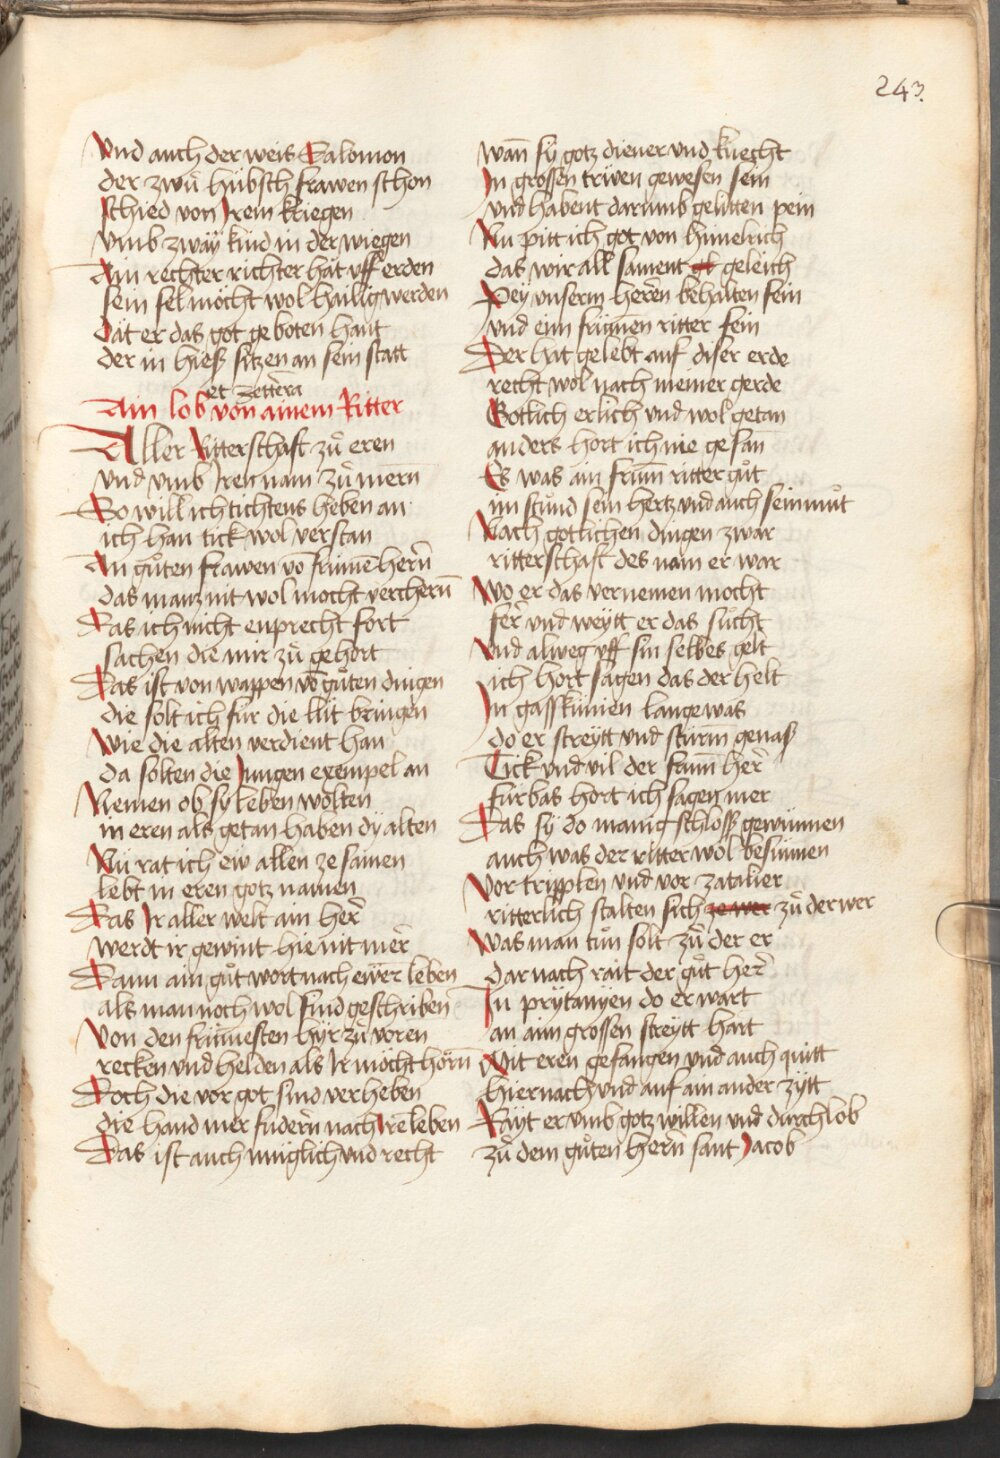 243.
Vnd auch der weis Salomon
der zwu̇ hübsch frawen schon
schied von Irem kriegen
Vmb zwaÿ kind in der wiegen
Ain rechter richter hat vff erden
sein sel möcht wol haillig werden
Dät er das got ge boten hant
der in hieß sitzen an sein statt
et zettera
Ain lob von ainem Ritter
Aller Ritterschaft zů eren
Vnd vmb Iren nam zů mern̄
So will ich tichtens heben an
ich han tick wol verstan
An gůten frawen vō frumē hern̄
das man nit wol mocht verchern̄
Das ich nicht enprecht fort
sachen die mir zů gehort
Das ist von wappen vō gůten dingen
die solt ich für die llit bringen
Wie die alten verdient han
da solten die Jungen exempel an
Nemen ob sy leben wolten
in eren als getan haben dy alten
Nu rat ich eiv allen ze samen
lebt in eren gotz namen
Das Ir aller welt ain her̄
werdt ir gewint hie nit mer̄
Dann ain gůt wort nach ewer leben
als man noch wol find geschriben
Von den frümesten hÿr zů voren
recken vnd helden als Ir möcht hörn̄
Doch die vor got sind verheben
die hand mer fudern̄ nach Irē leben
Das ist auch müglich vnd recht
wan̄ sy gotz diener vnd knecht
In grossen triven gewesen sein
vnd habent darumb gelitten pein
Nu pitt ich got von himelrich
das wir all sament geleich
Peÿ vnserm heren behalten sein
vnd ein frumen ritter fein
Der hat gelebt auf diser erde
recht wol nach meiner gerde
Gotlich erlich vnd wol getan
anders hort ich nie gesan
Es was ain frum̄ ritter gůt
im stůnd sein hertz vnd auch sein můt
Nach gotlichen dingen zwar
ritterschaft des nam er war
Wo er das vernemen mocht
fer̄ vnd weÿtt er das sůcht
Vnd alweg vff sin selbes gelt
ich hort sagen das der helt
In gasskünien lange was
do er streÿtt vnd sturm̄ genaß
Tick vnd vil der fram̄ her̄
fürbas hort ich sagen mer
Das sÿ do manig schloß gewunnen
auch was der ritter wol besunnen
Vor tripplen vnd vor zatalier
ritterlich stalten sich ze wer zů der wer
Was man tůn solt zů der er
dar nach rait der gůt her̄
In prÿtanÿen do er wart
an aim grossen streÿtt hart
Mit eren gefangen vnd auch quitt
hiernach vnd auf ain ander zÿtt
Raÿt er vmb gotz willen vnd durch lob
zů dem gůten hern̄ sant Jacob